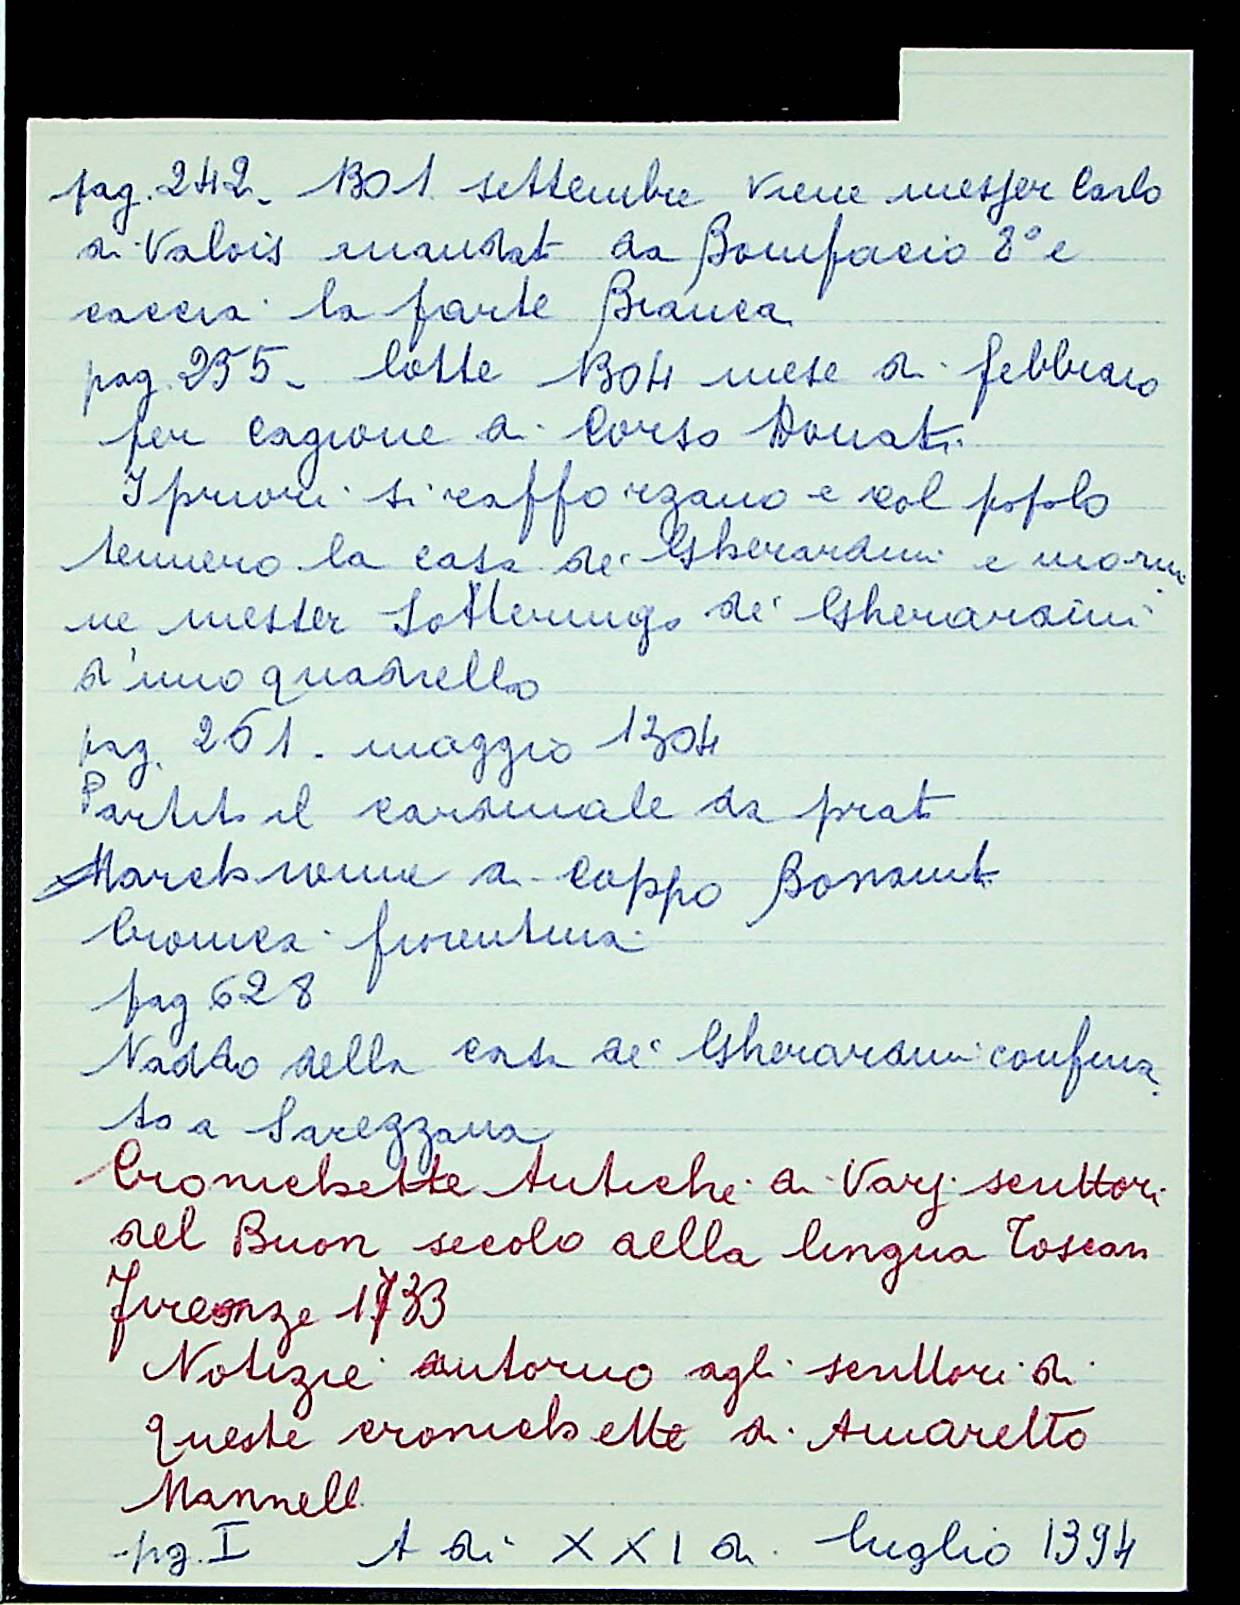 pag. 242. 1301 settembre viene messer Carlo
di Valois mandato da Bonifacio 8° e
caccia la parte Bianca
pag. 255. lotte 1304 mese di febbraio
per cagione di Corso Donati
I priori si rafforzano e col popolo
tennero la casa de' Gherardini e morin
ne messer Lotteringo de' Gherardini
d'uno quadrello
pag. 261. maggio 1304
Partito il cardinale da prato
Marchionne di Coppo Bonaiuti
Cronica fiorentina
pag 628
Naddo della casa de' Gherardini confina
to a Sarezzana
Cronichette Antiche di Varj scrittori
del Buon secolo della lingua Toscan
Firenze 1733
Notizie intorno agli scrittori di
queste cronichette di Amaretto
Mannelli
pg. I A dì XXI di luglio 1394